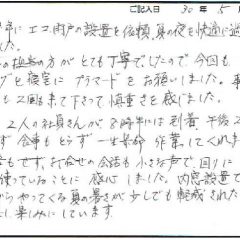 ご記入日 30年 5月
年に エコ雨戸の設置を依頼 夏の夜を快適に過
した。
の担当の方がとても丁寧でしたので 今回も
グと寝室に プラマードを お願いしました。
も 2回も来て下さって慎重さを感じました。
2人の社員さんが 8時半には 到着 午後2
ず 食事もとらず 一生懸命 作業してくれま
もせず、打合せの会話も 小さな声で、回りに
使っていることに 感心しました。内窓設置で
からやってくる夏の暑さが少しでも軽減された
しみにしています